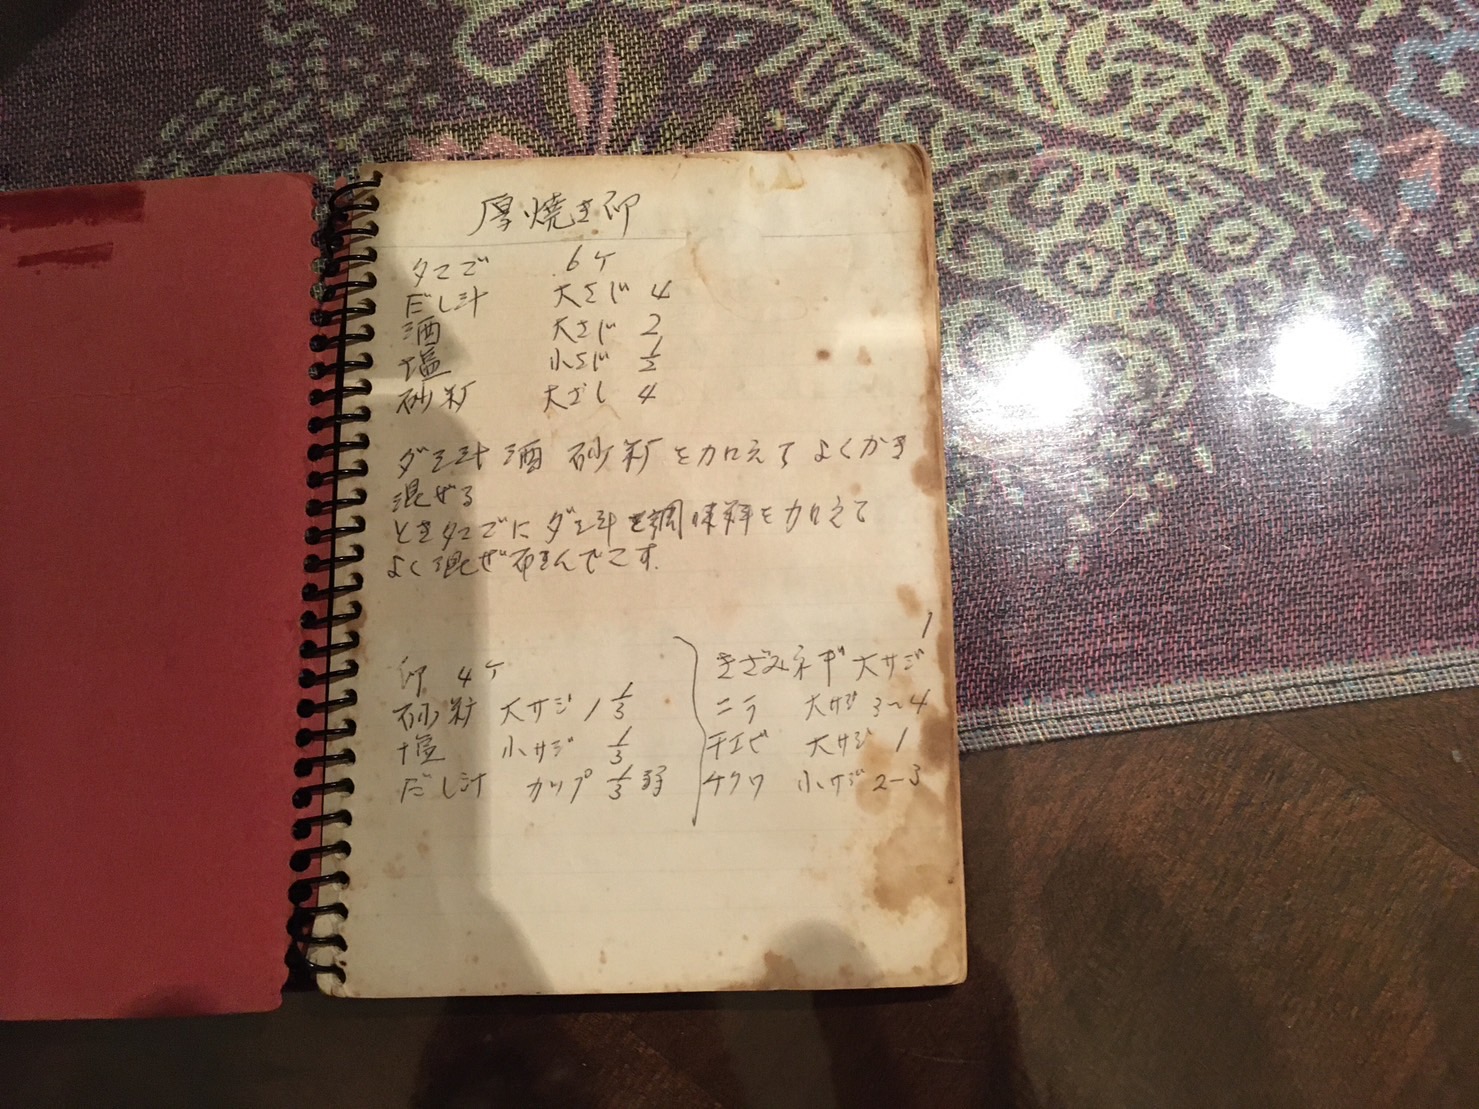 厚焼き卵
タマゴ 6ケ
だし汁 大さじ 4
酒 大さじ 2
塩 小さじ 1/2
砂糖 大さじ 4
ダシ汁 酒 砂糖を加えて よくかき
混ぜる
ときタマゴに ダシ汁を調味料を加えて
よく混ぜ 布きんでこす.
卵 4ケ
砂糖 大サジ 1 1/3
塩 小サジ 1/3
だし汁 カップ 1/3 弱
きざみネギ 大サジ 1
ニラ 大サジ 3~4
干エビ 大サジ 1
チクワ 小サジ 2-3